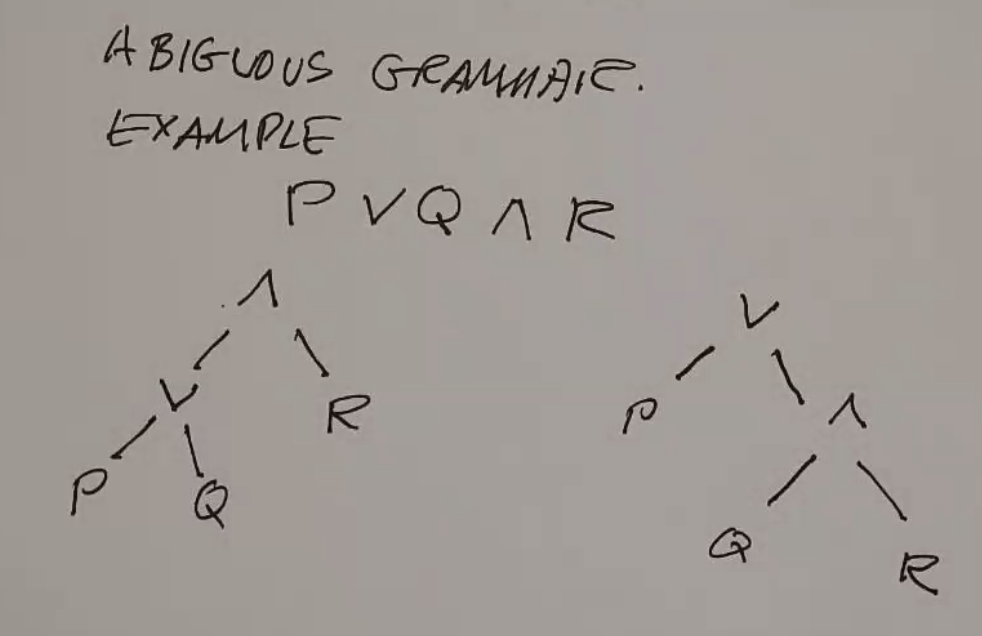 ABIGUOUS GRAMMAR.
EXAMPLE
P ∨ Q ∧ R
∧
∨ R
P Q
∨
P ∧
Q R